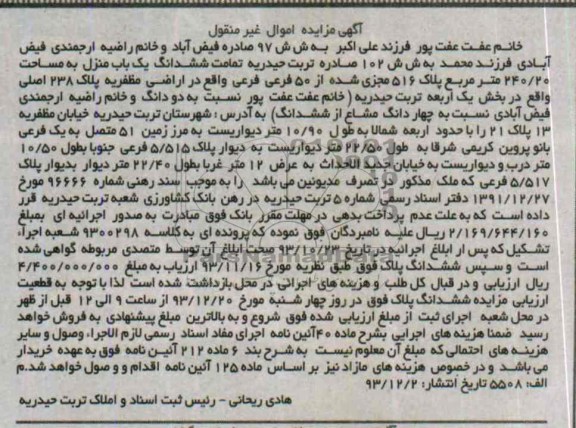 آگهی مزایده اموال غیر منقول
خانم عفت عفت پور فرزند علی اکبر به ش ش ۹۷ صادره فیض آباد و خانم راضیه ارجمندی فیض
آبادی فرزند محمد به ش ش ۱۰۲ صادره تربت حیدریه تمامت ششدانگ یک باب منزل به مساحت
۲۴۰/۲۰ متر مربع پلاک ۵۱۶ مجزی شده از ۵۰ فرعی فرعی واقع در اراضی مظفریه پلاک ۲۳۸ اصلی
واقع در بخش یک اربعه تربت حیدریه (خانم عفت عفت پور نسبت به دو دانگ و خانم راضیه ارجمندی
فیض آبادی نسبت به چهار دانگ مشاع از ششدانگ) به آدرس: شهرستان تربت حیدریه خیابان مظفریه
۱۳ پلاک ۲۱ را با حدود اربعه شمالا به طول ۱۰/۹۰ متر دیواریست به مرز زمین ۵۱ متصل به یک فرعی
بانو پروین کریمی شرقا به طول ۲۲/۵۰ متر دیواریست به دیوار پلاک ۵/۵۱۵ فرعی جنوبا بطول ۱۰/۵۰
متر درب و دیواریست به خیابان جدید الاحداث به عرض ۱۲ متر غربا بطول ۲۲/۴۰ متر دیوار بدیوار پلاک
۵/۵۱۷ فرعی که ملک مذکور در تصرف مدیونین می باشد را به موجب سند رهنی شماره ۹۶۶۶۶ مورخ
۱۳۹۱/۱۲/۲۷ دفتر اسناد رسمی شماره ۵ تربت حیدریه در رهن بانک کشاورزی شعبه تربت حیدریه قرار
داده است که به علت عدم پرداخت بدهی در مهلت مقرر بانک فوق مبادرت به صدور اجرائیه ای بمبلغ
۲/۱۶۹/۶۴۴/۱۶۰ ریال علیه نامبردگان فوق نموده که پرونده ای به کلاسه ۹۳۰۰۲۹۸ شعبه اجراء
تشکیل که پس از ابلاغ اجرائیه در تاریخ ۹۳/۱۰/۲۳ صحت ابلاغ آن توسط متصدی مربوطه گواهی شده
است و سپس ششدانگ پلاک فوق طبق نظریه مورخ ۹۳/۱۱/۱۶ ارزیاب به مبلغ ۴/۴۰۰/۰۰۰/۰۰۰
ریال ارزیابی و در قبال کل طلب و هزینه های اجرائی در محل بازداشت شده است لذا با توجه به قطعیت
ارزیابی مزایده ششدانگ پلاک فوق در روز چهار شنبه مورخ ۹۳/۱۲/۲۰ از ساعت ۹ الی ۱۲ قبل از ظهر
در محل شعبه اجرای ثبت از مبلغ ارزیابی شده فوق شروع و به بالاترین مبلغ پیشنهادی به فروش خواهد
رسید ضمنا هزینه های اجرایی بشرح ماده ۴۰ آئین نامه اجرای مفاد اسناد رسمی لازم الاجراء وصول و سایر
هزینه های احتمالی که مبلغ آن معلوم نیست به شرح بند ۶ ماده ۲۱۲ آئین نامه فوق به عهده خریدار
می باشد و در خصوص هزینه های مازاد نیز بر اساس ماده ۱۲۵ آئین نامه اقدام و و صول خواهد شد.م
الف: ۵۵۰۸ تاریخ انتشار: ۹۳/۱۲/۲
هادی ریحانی - رئیس ثبت اسناد و املاک تربت حیدریه